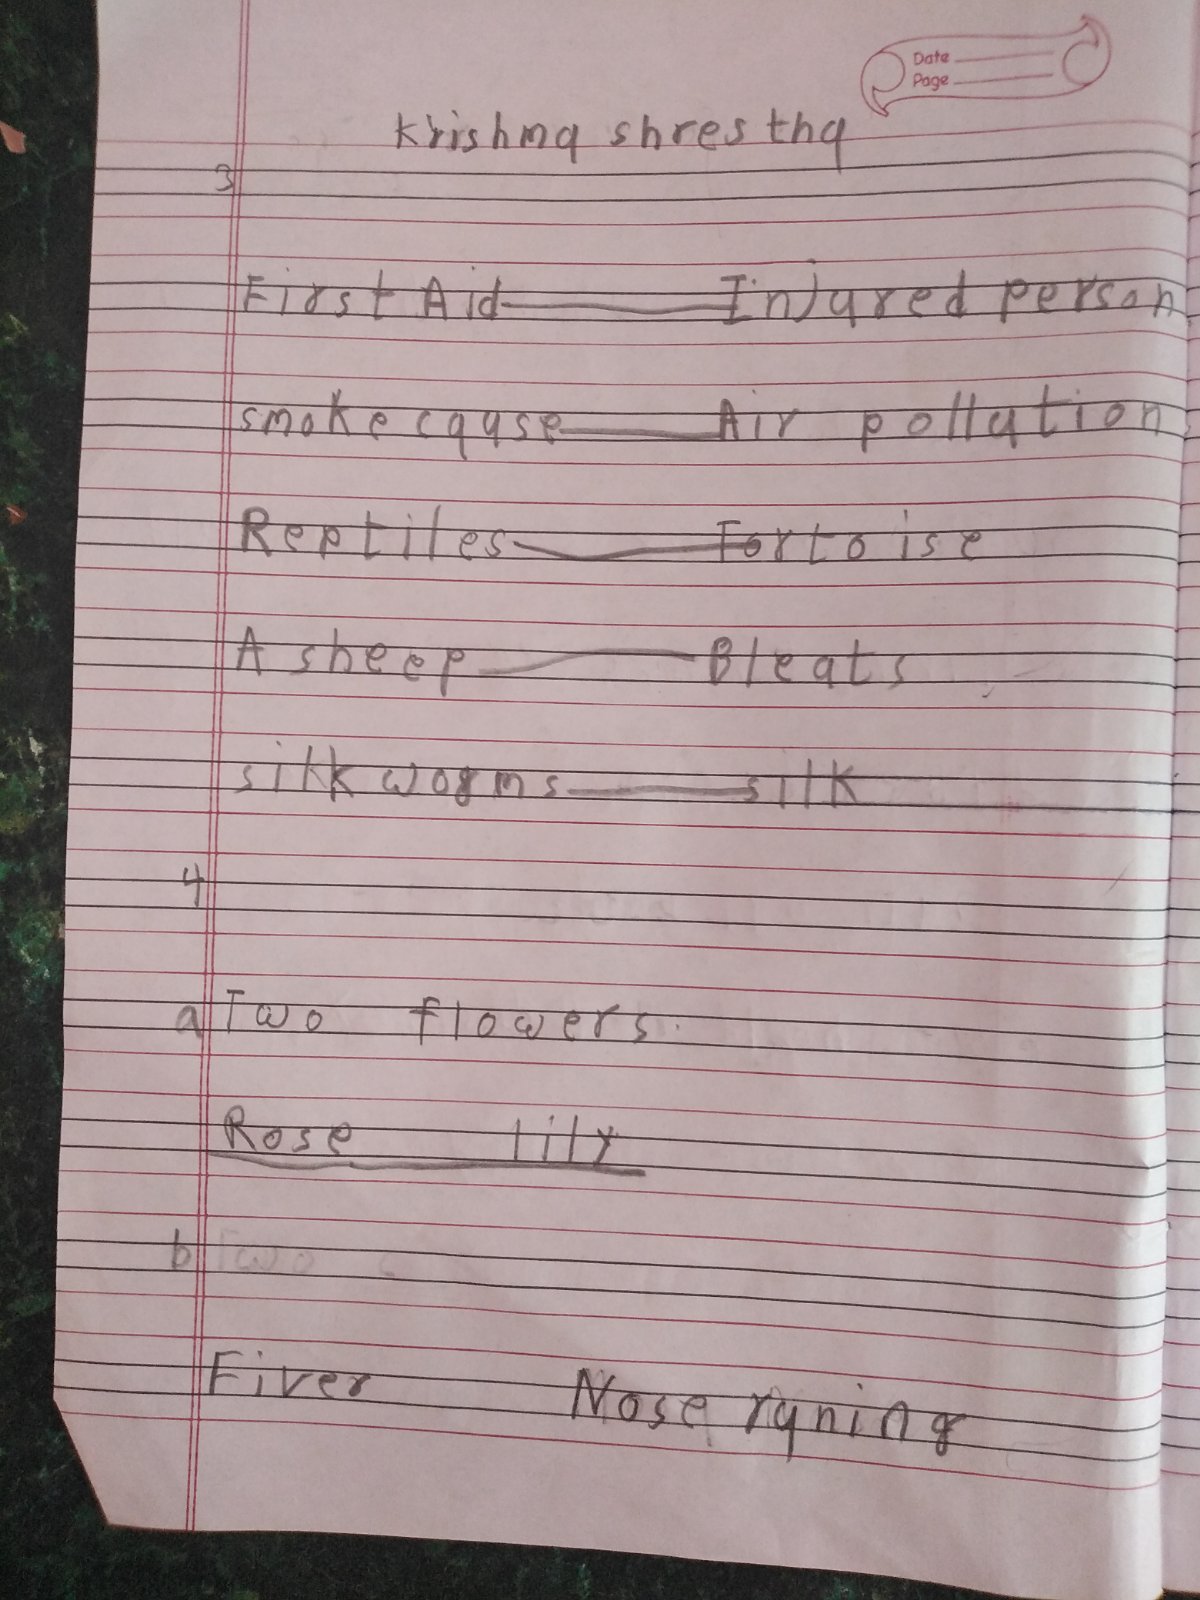 Date
Page
Krishna shrestha
3
First Aid Injured person
smoke cause Air pollution
Reptiles Tortoise
A sheep Bleats
silkworms silk
4
a Two flowers.
Rose lily
b Two
Fiver Nose raning